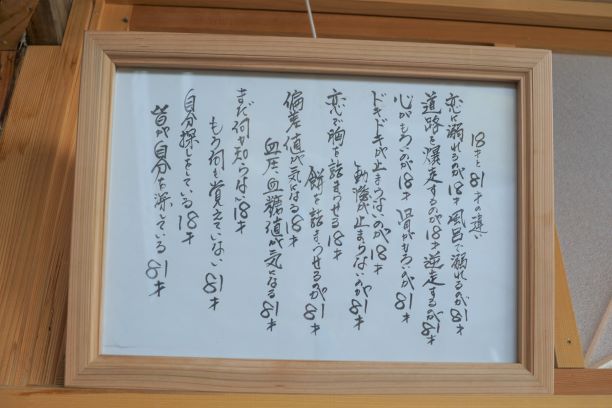 18才と81才の違い
恋に溺れるのが18才 風呂で溺れるのが81才
道路を爆走するのが18才 逆走するのが81才
心がもろいのが18才 骨がもろいのが81才
ドキドキが止まらないのが18才
動悸が止まらないのが81才
恋で胸を詰まらせる18才
餅を詰まらせるのが81才
偏差値が気になる18才
血圧、血糖値が気になる81才
まだ何も知らない18才
もう何も覚えていない81才
自分探しをしている18才
皆が自分を探している81才